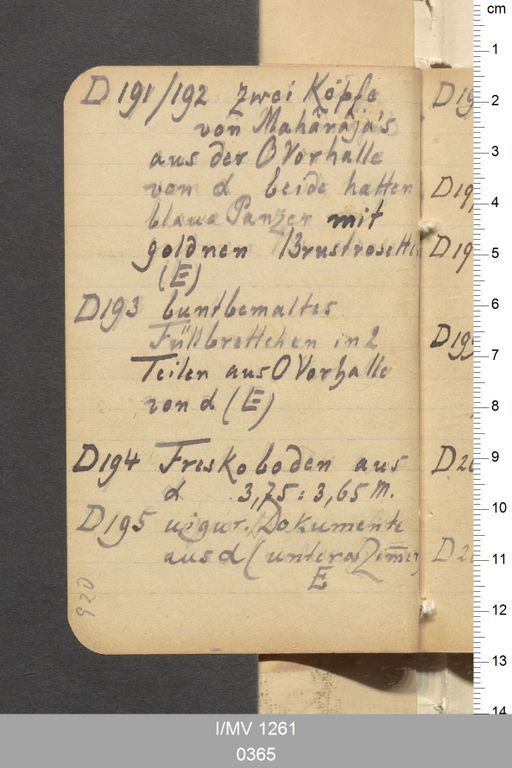 D 191/192 zwei Köpfe
von Mahârâja's
aus der O Vorhalle
von α beide hatten
blaue Panzer mit
goldnen Brustrosetten
(E)
D193 buntbemaltes
Füllbrettchen in 2
Teilen aus O Vorhalle
von α (E)
D194 Freskoboden aus
α 3,75 : 3,65 m.
D195 uigur. Dokumente
aus α (unteres Zimmer)
E
920
D 19
D 19
D 19
D 19
D 2
D 2
cm
1
2
3
4
5
6
7
8
9
10
11
12
13
14
I/MV 1261
0365